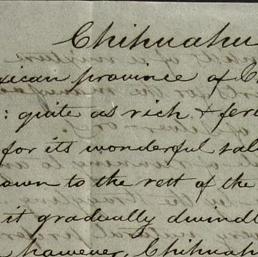 Chihuahu
xican province of C
: quite as rich + fer
for its wonderful sal
own to the rest of the
it gradually dwindl
however, Chihuahu